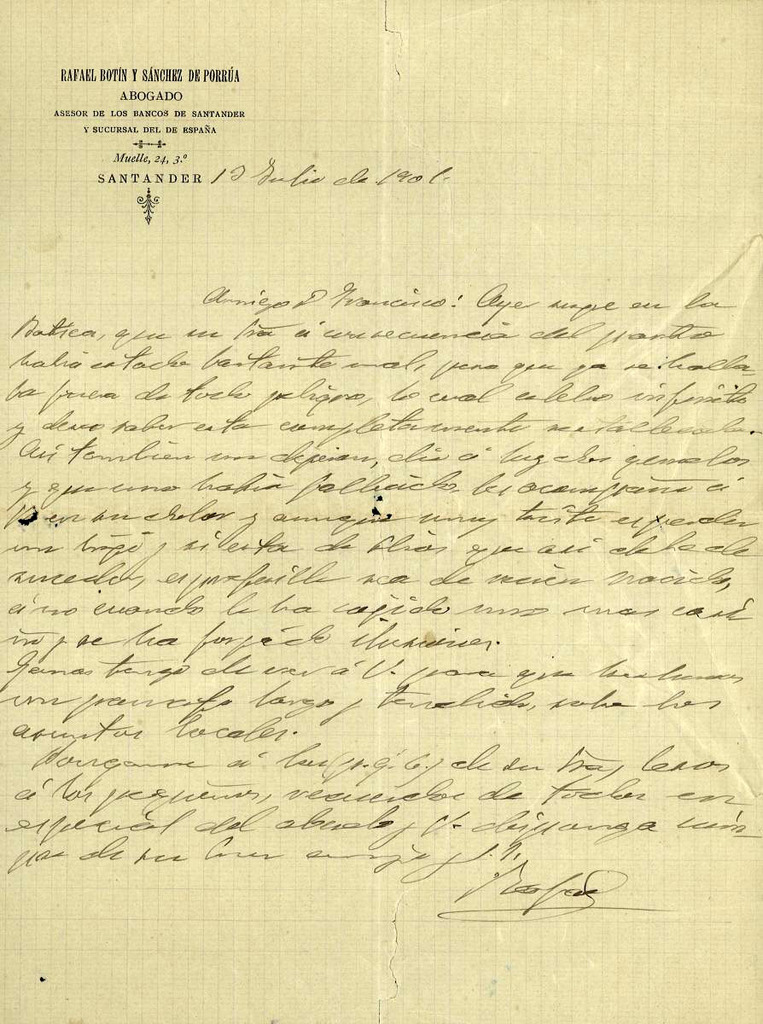 RAFAEL BOTÍN Y SÁNCHEZ DE PORRÚA
ABOGADO
ASESOR DE LOS BANCOS DE SANTANDER
Y SUCURSAL DEL DE ESPAÑA
Muelle, 24, 3.º
SANTANDER
Julio de 1901.
Amigo D Francisco: Ayer supe en la
que su Sra á consecuencia del parto
habia estado bastante mal, pero que ya se halla-
ba fuera de todo peligro, lo cual celebro infinito
y deseo saber esta completamente restablecida.
Asi tambien me dijeron, dió á luz dos gemelos
y que uno habia fallecido, les acompaño á
en su dolor y aunque muy triste es perder
un hijo, si esta de Dios que asi debe de
suceder, es preferible sea de recien nacido,
á no cuando le ha cojido uno mas cari
ño y se ha forjado ilusiones.
Ganas tengo de ver á V. para que echemos
un parrafo largo y tendido, sobre los
asuntos locales.
Pongame á los (p. q. b.) de su Sra, besos
á los pequeños, recuerdos de todos en
especial del abuelo y V. disponga siem
pre de su buen amigo y s. s.
Rafael